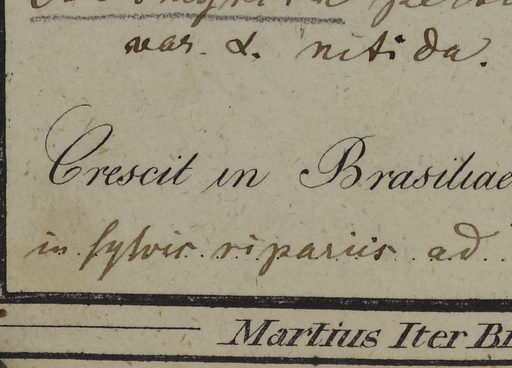 var. α. nitida.
Crescit in Brasiliae
in sylvis ripariis ad
Martius Iter Br